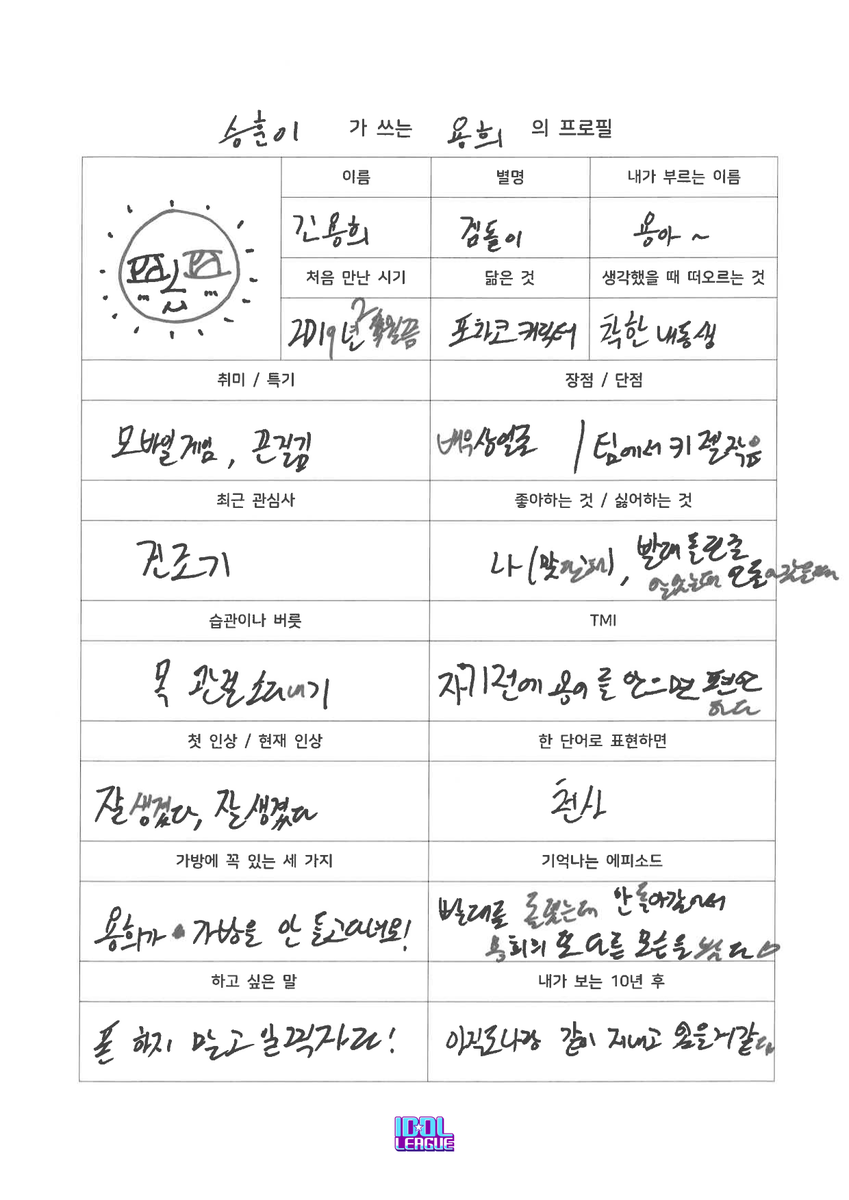 승훈이 가 쓰는 용희 의 프로필
이름 별명 내가 부르는 이름
김용희 짐돌이 용아~
처음 만난 시기 닮은 것 생각했을 때 떠오르는 것
2019년 2월쯤 포차코 캐릭터 착한 내동생
취미 / 특기 장점 / 단점
모바일게임, 끈질김 배우상얼굴 / 팀에서 키 젤작음
최근 관심사 좋아하는 것 / 싫어하는 것
건조기 나 (맞는데), 빨래 돌린줄
알았는데 안돌아갔을때
습관이나 버릇 TMI
목 관절 소리내기 자기전에 용이를 안으면 편안
하다
첫 인상 / 현재 인상 한 단어로 표현하면
잘생겼다, 잘생겼다 천사
가방에 꼭 있는 세 가지 기억나는 에피소드
용희가 가방을 안 들고다녀요! 빨래를 돌렸는데 안돌아갔어서
용희의 또 다른 모습을 봤다
하고 싶은 말 내가 보는 10년 후
폰 하지 말고 일찍자라! 아직도나랑 같이 지내고 있을거같다
IDOL
LEAGUE